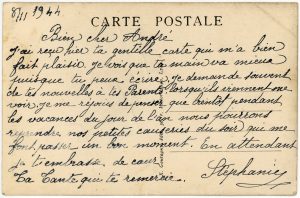 8/11 1944
CARTE POSTALE
Bien cher André
J'ai reçu hier ta gentille carte qui m'a bien
fait plaisir je vois que ta main va mieux
puisque tu peux écrire. Je demande souvent
de tes nouvelles à tes Parents lorsqu'ils viennent me
voir. Je me rejouis de penser que bientôt pendant
les vacances du Jour de l'an nous pourrons
reprendre nos petites causeries du soir que me
font passer un bon moment. En attendant
je t'embrasse de cœur
Ta Tante qui te remercie. Stéphanie